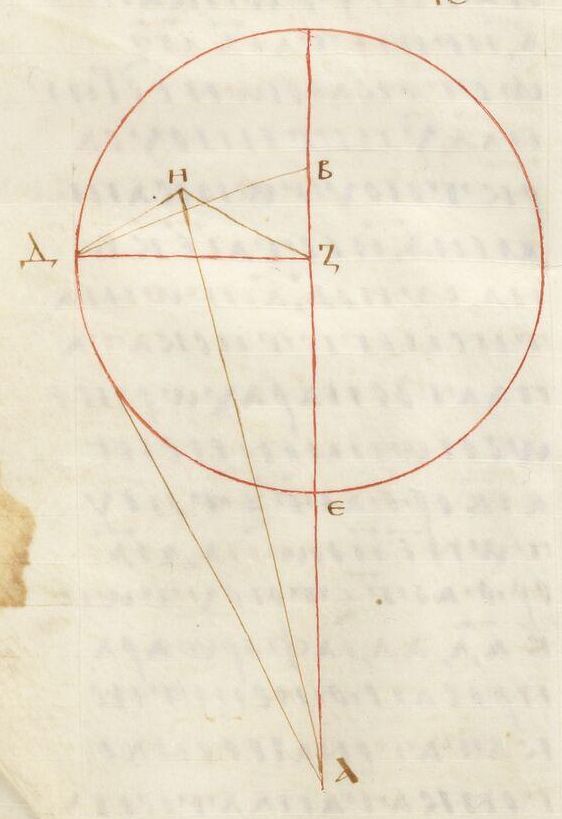 Η
Β
Δ
Ζ
Ε
Α